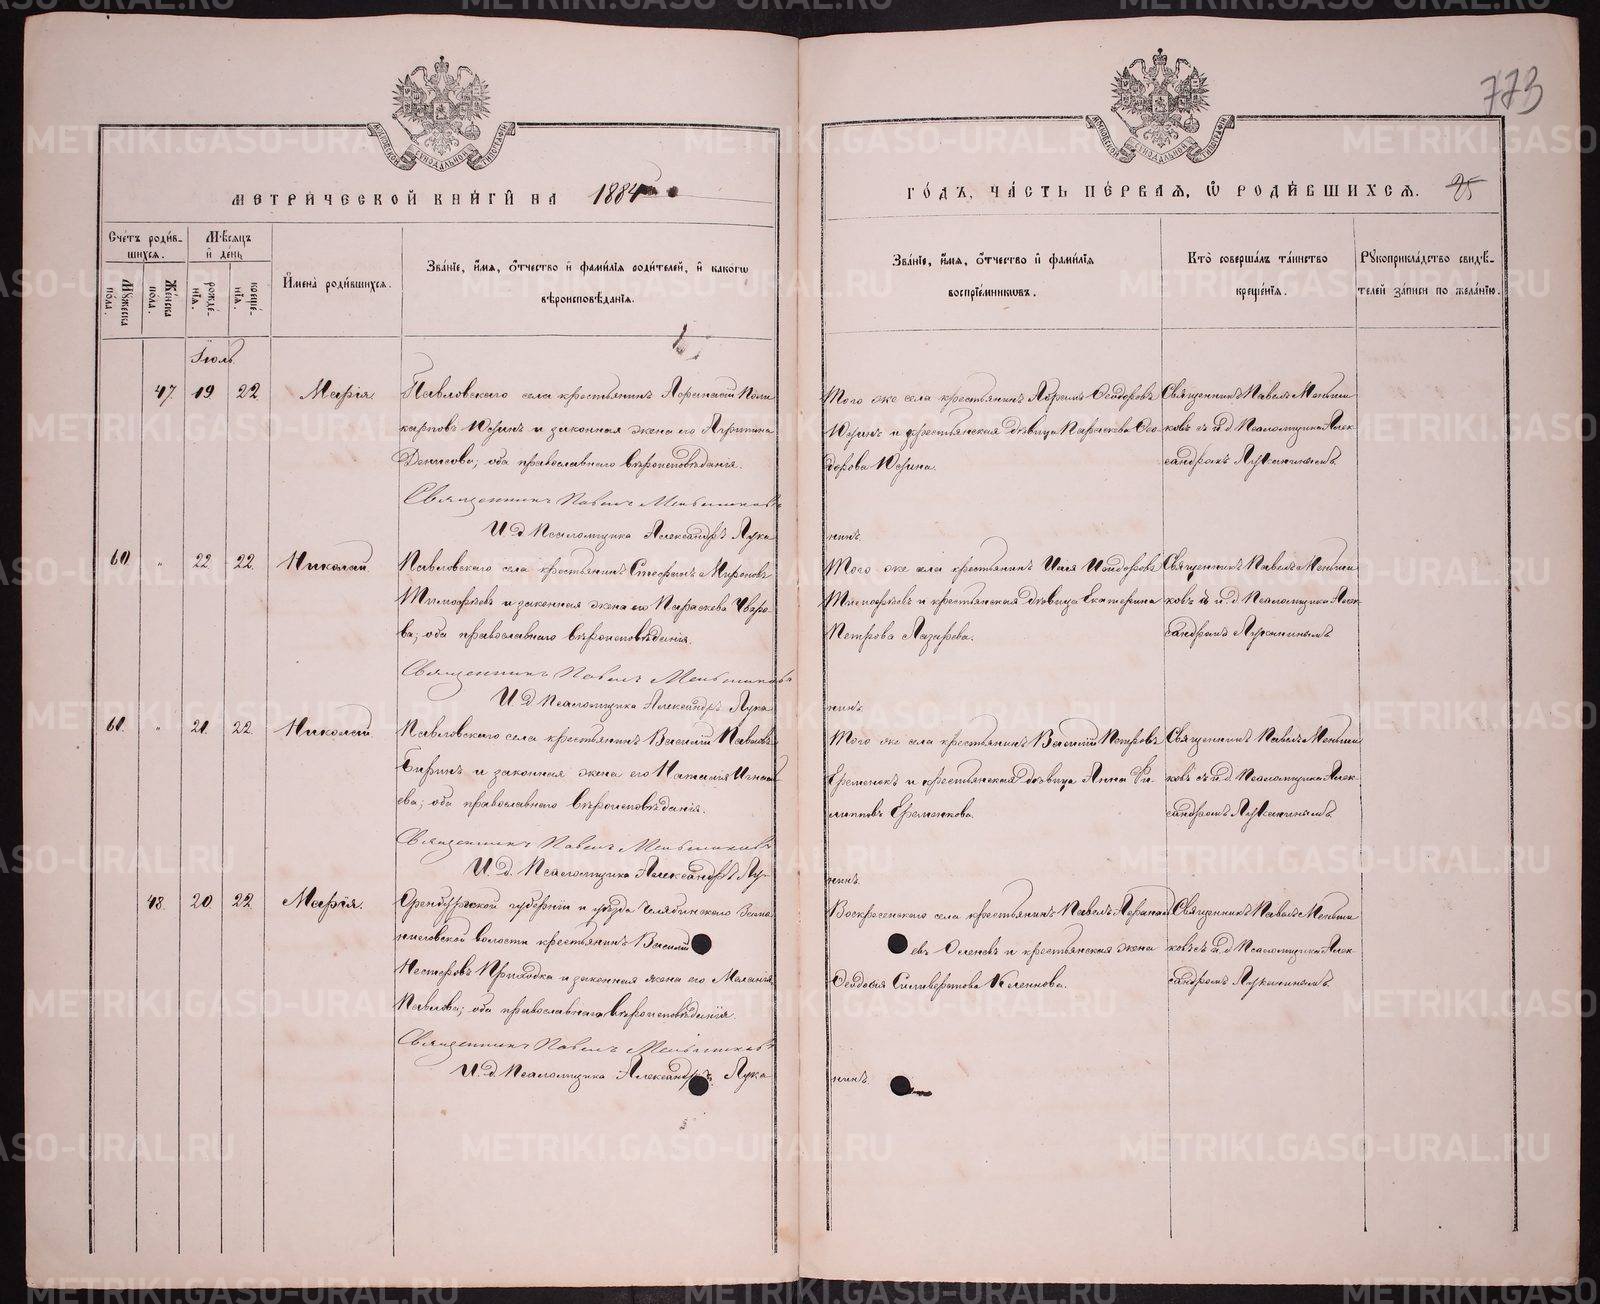 773
МЕТРИЧЕСКОЙ КНИГИ НА 1884
ГОДЪ, ЧАСТЬ ПЕРВАЯ, Ѡ РОДИВШИХСЯ. 95
Счетъ родив-
шихся.
Мужеска пола.
Женска пола.
Мѣсяцъ
и день
рожде-
нія.
креще-
нія.
Имена родившихся.
Званіе, имя, отчество и фамилія родителей, и какогѡ
вѣроисповѣданія.
Званіе, имя, отчество и фамилія
воспріемниковъ.
Кто совершалъ таинство
крещенія.
Рукоприкладство свидѣ-
телей записи по желанію.
Іюль.
47. 19 22 Марія.
Павловскаго села крестьянинъ Афанасій Поли
карповъ Юринъ и законная жена его Агрипина
Денисова; оба православнаго вѣроисповѣданія.
Священникъ Павелъ Меньшиковъ
И. д. Псаломщика Александръ Лука
Того же села крестьянинъ Ѳеодоровъ
Юринъ и крестьянская дѣвица Параскева Ѳео
дорова Юрина.
нинъ.
Священникъ Павелъ Меньши
ковъ съ и. д. Псаломщика Алек
сандромъ Луканинымъ.
60 " 22 22. Николай.
Павловскаго села крестьянинъ Стефанъ Мироновъ
Тимофѣевъ и законная жена его Параскева
ва; оба православнаго вѣроисповѣданія.
Священникъ Павелъ Меньшиковъ
И. д. Псаломщика Александръ Лука
Того же села крестьянинъ Илія Исидоровъ
Тимофѣевъ и крестьянская дѣвица Екатерина
Петрова Лазарева.
нинъ.
Священникъ Павелъ Меньши
ковъ съ и. д. Псаломщика Алек
сандромъ Луканинымъ.
61. " 21. 22. Николай.
Павловскаго села крестьянинъ Василій Павловъ
Биринъ и законная жена его Наталія Игнать
ева; оба православнаго вѣроисповѣданія.
Священникъ Павелъ Меньшиковъ
И. д. Псаломщика Александръ Лу-
Того же села крестьянинъ Василій Петровъ
Еременокъ и крестьянская дѣвица Анна Фи-
липповъ Еременкова.
нинъ.
Священникъ Павелъ Меньши
ковъ съ и. д. Псаломщика Алек
сандромъ Луканинымъ.
48. 20. 22. Марія.
Оренбургской губерніи и уѣзда Челябинскаго
волости крестьянинъ Василій
Несторовъ Приходка и законная жена его Меланія
Павлова; оба православнаго вѣроисповѣданія.
Священникъ Павелъ Меньшиковъ
И. д. Псаломщика Александръ Лука
Воскресенскаго села крестьянинъ Павелъ Афанась
евъ и крестьянская жена
Ѳеодосія Силиверстова
нинъ.
Священникъ Павелъ Меньши
ковъ съ и. д. Псаломщика Алек
сандромъ Луканинымъ.
METRIKI.GASO-URAL.RU